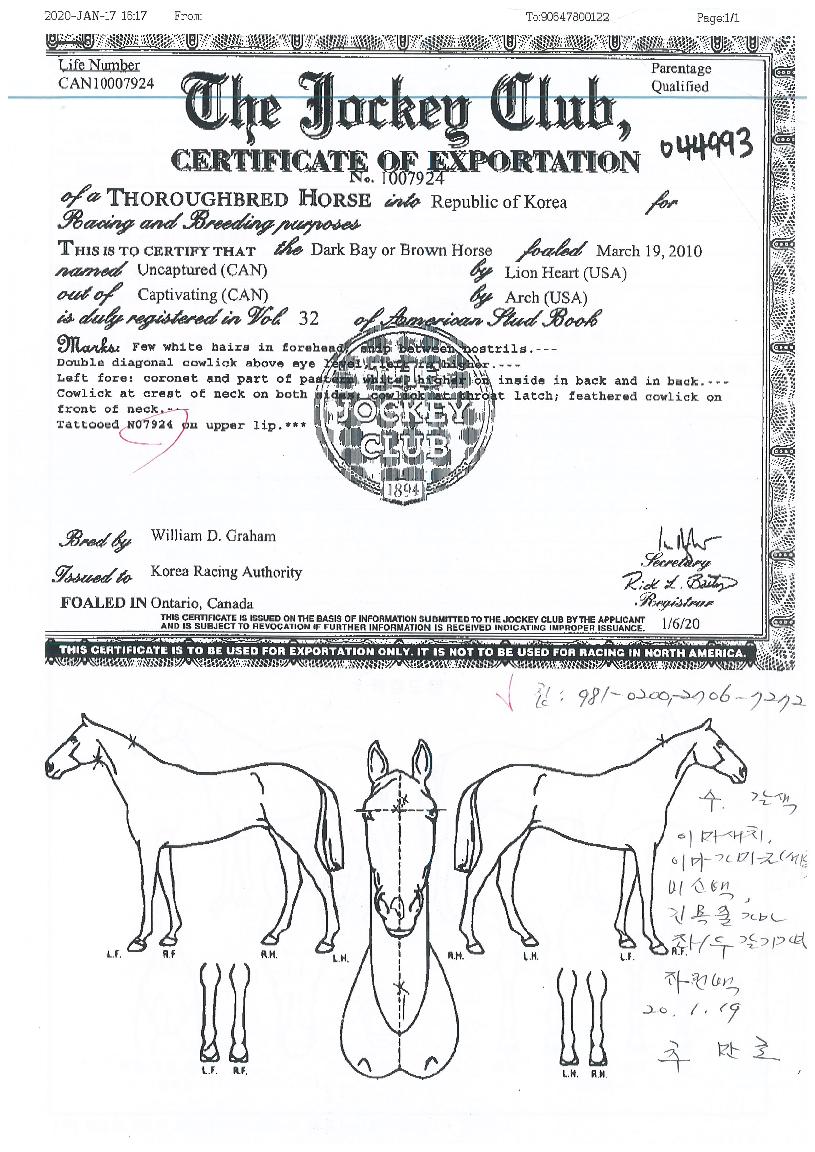 2020-JAN-17 16:17 From: To:90647800122 Page:1/1
Life Number
CAN10007924
Parentage
Qualified
The Jockey Club,
044993
CERTIFICATE OF EXPORTATION
No. 1007924
of a THOROUGHBRED HORSE into Republic of Korea for
Racing and Breeding purposes
THIS IS TO CERTIFY THAT the Dark Bay or Brown Horse foaled March 19, 2010
named Uncaptured (CAN) by Lion Heart (USA)
out of Captivating (CAN) by Arch (USA)
is duly registered in Vol. 32 of American Stud Book
Marks: Few white hairs in forehead, snip between nostrils.---
Double diagonal cowlick above eye level, left is higher.---
Left fore: coronet and part of pastern white, higher on inside in back and in back.---
Cowlick at crest of neck on both sides; cowlick at throat latch; feathered cowlick on
front of neck.---
Tattooed N07924 on upper lip.***
THE
JOCKEY
CLUB
1894
Bred by William D. Graham
Secretary
Issued to Korea Racing Authority
Registrar
FOALED IN Ontario, Canada
THIS CERTIFICATE IS ISSUED ON THE BASIS OF INFORMATION SUBMITTED TO THE JOCKEY CLUB BY THE APPLICANT
AND IS SUBJECT TO REVOCATION IF FURTHER INFORMATION IS RECEIVED INDICATING IMPROPER ISSUANCE. 1/6/20
THIS CERTIFICATE IS TO BE USED FOR EXPORTATION ONLY. IT IS NOT TO BE USED FOR RACING IN NORTH AMERICA.
칩: 981-0200,2706-7272
수. 갈색
이마새치,
비소백,
20. 1. 19
L.F. R.F R.H. L.H. R.H. L.H. L.F. R.F.
L.F. R.F. L.H. R.H.